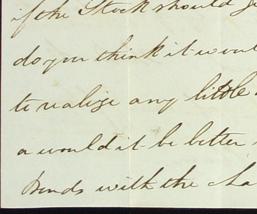 if the Stock should
do you think it woul
to realize any little
a would it be better
Bonds with the cha